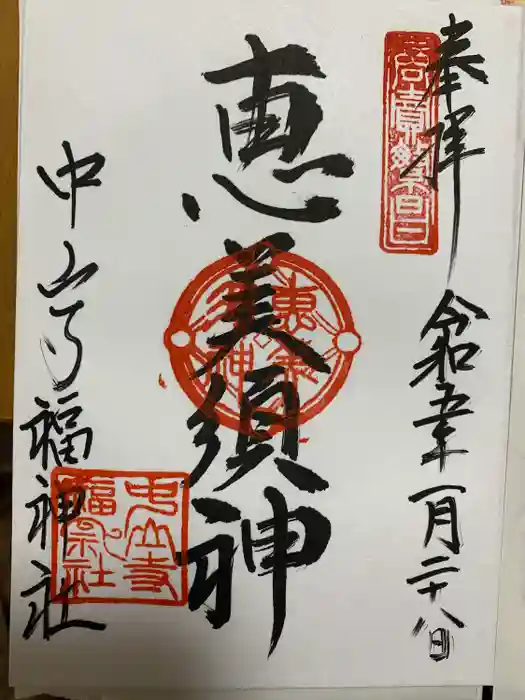 奉拝
商賣繁昌
令和五年一月二十八日
恵美須神
惠美
須神
中山寺福神社
中山寺
福神社